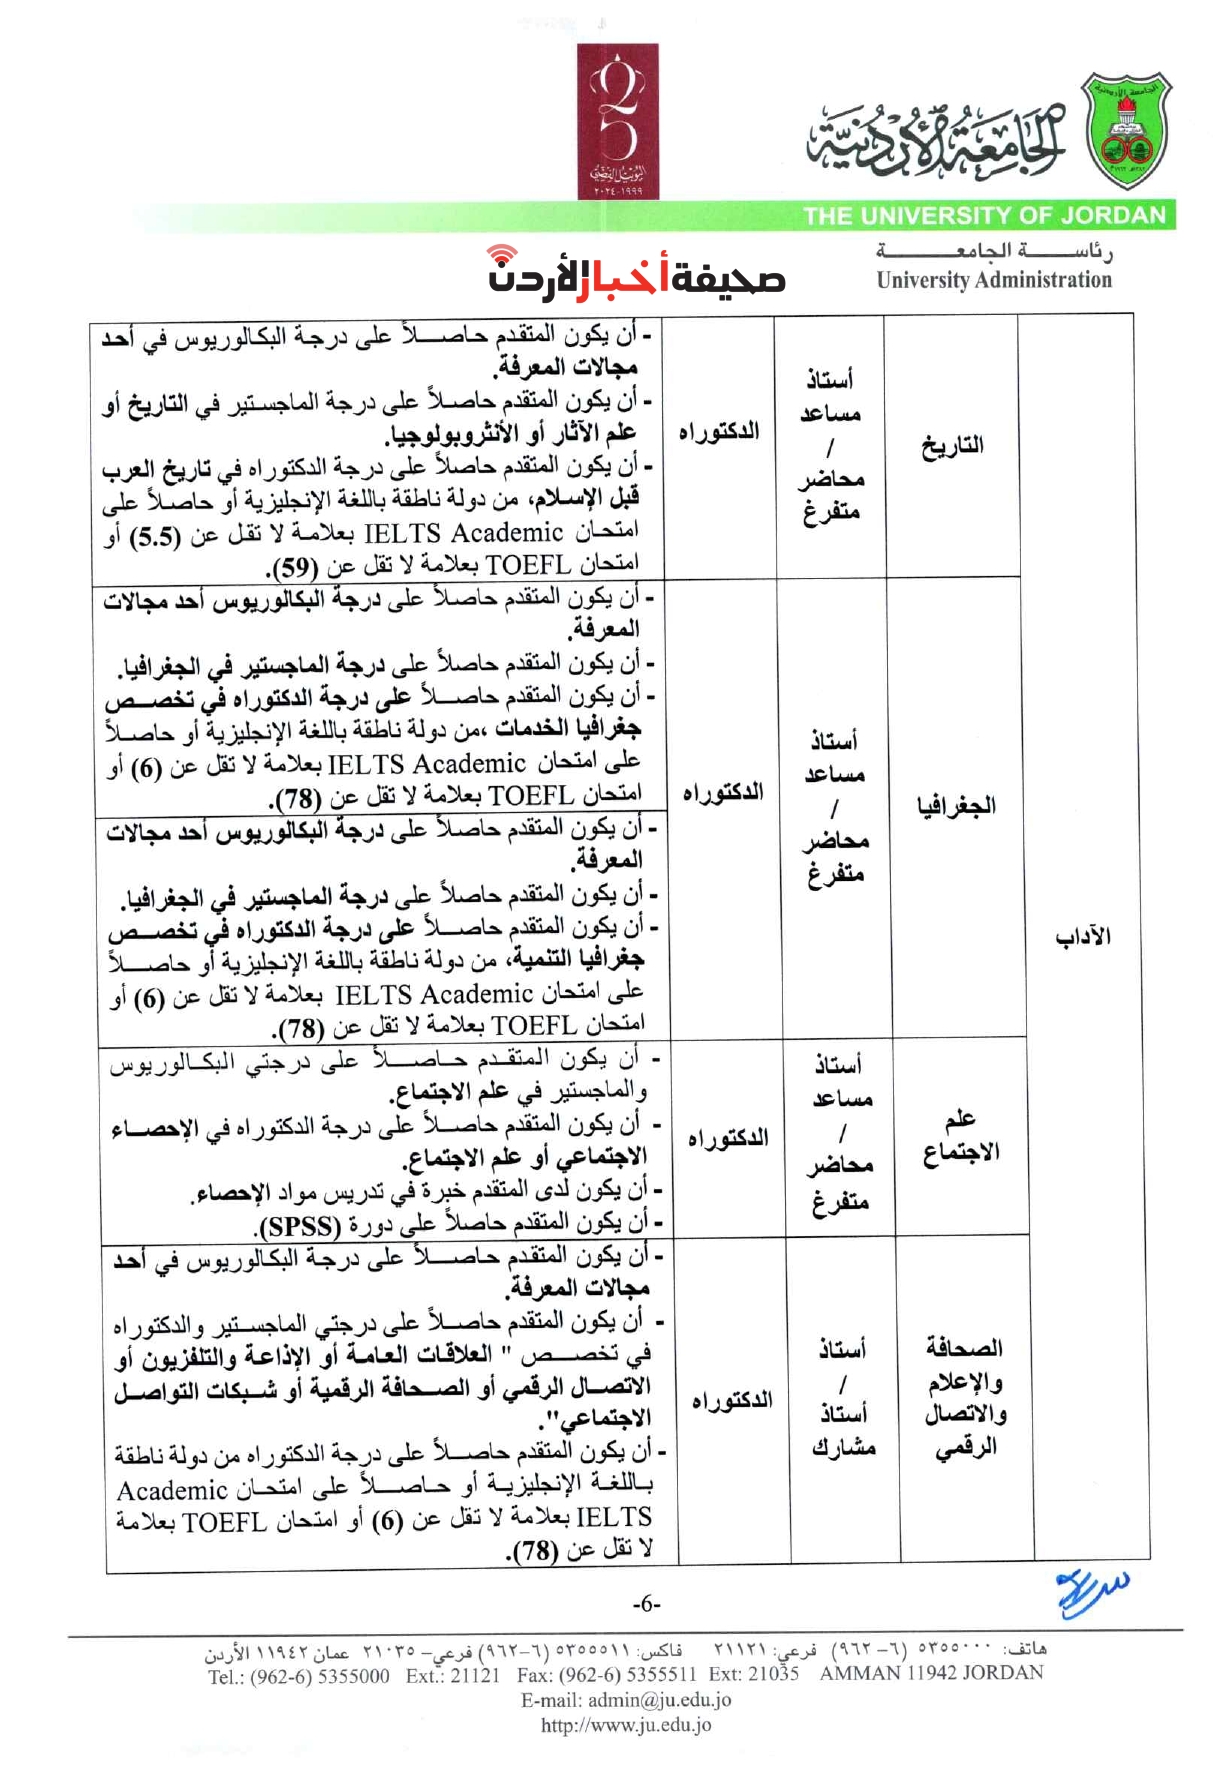 اليوبيل الفضي
١٩٩٩-٢٠٢٤
الجامعة الأردنية
THE UNIVERSITY OF JORDAN
رئاســـة الجامعـــــة
University Administration
صحيفة أخبار الأردن
الآداب
التاريخ
أستاذ
مساعد
/
محاضر
متفرغ
الدكتوراه
- أن يكون المتقدم حاصلاً على درجة البكالوريوس في أحد
مجالات المعرفة.
- أن يكون المتقدم حاصلاً على درجة الماجستير في التاريخ أو
علم الآثار أو الأنثروبولوجيا.
- أن يكون المتقدم حاصلاً على درجة الدكتوراه في تاريخ العرب
قبل الإسلام، من دولة ناطقة باللغة الإنجليزية أو حاصلاً على
امتحان IELTS Academic بعلامة لا تقل عن (5.5) أو
امتحان TOEFL بعلامة لا تقل عن (59).
الجغرافيا
أستاذ
مساعد
/
محاضر
متفرغ
الدكتوراه
- أن يكون المتقدم حاصلاً على درجة البكالوريوس أحد مجالات
المعرفة.
- أن يكون المتقدم حاصلاً على درجة الماجستير في الجغرافيا.
- أن يكون المتقدم حاصلاً على درجة الدكتوراه في تخصص
جغرافيا الخدمات ،من دولة ناطقة باللغة الإنجليزية أو حاصلاً
على امتحان IELTS Academic بعلامة لا تقل عن (6) أو
امتحان TOEFL بعلامة لا تقل عن (78).
- أن يكون المتقدم حاصلاً على درجة البكالوريوس أحد مجالات
المعرفة.
- أن يكون المتقدم حاصلاً على درجة الماجستير في الجغرافيا.
- أن يكون المتقدم حاصلاً على درجة الدكتوراه في تخصص
جغرافيا التنمية، من دولة ناطقة باللغة الإنجليزية أو حاصلاً
على امتحان IELTS Academic بعلامة لا تقل عن (6) أو
امتحان TOEFL بعلامة لا تقل عن (78).
علم
الاجتماع
أستاذ
مساعد
/
محاضر
متفرغ
الدكتوراه
- أن يكون المتقدم حاصلاً على درجتي البكالوريوس
والماجستير في علم الاجتماع.
- أن يكون المتقدم حاصلاً على درجة الدكتوراه في الإحصاء
الاجتماعي أو علم الاجتماع.
- أن يكون لدى المتقدم خبرة في تدريس مواد الإحصاء.
- أن يكون المتقدم حاصلاً على دورة (SPSS).
الصحافة
والإعلام
والاتصال
الرقمي
أستاذ
/
أستاذ
مشارك
الدكتوراه
- أن يكون المتقدم حاصلاً على درجة البكالوريوس في أحد
مجالات المعرفة.
- أن يكون المتقدم حاصلاً على درجتي الماجستير والدكتوراه
في تخصص " العلاقات العامة أو الإذاعة والتلفزيون أو
الاتصال الرقمي أو الصحافة الرقمية أو شبكات التواصل
الاجتماعي".
- أن يكون المتقدم حاصلاً على درجة الدكتوراه من دولة ناطقة
باللغة الإنجليزية أو حاصلاً على امتحان Academic
IELTS بعلامة لا تقل عن (6) أو امتحان TOEFL بعلامة
لا تقل عن (78).
-6-
هاتف: ٥٣٥٥٠٠٠ (٦-٩٦٢) فرعي: ٢١١٢١ فاكس: ٥٣٥٥٥١١ (٦-٩٦٢) فرعي– ٢١٠٣٥ عمان ١١٩٤٢ الأردن
Tel.: (962-6) 5355000 Ext.: 21121 Fax: (962-6) 5355511 Ext: 21035 AMMAN 11942 JORDAN
E-mail: admin@ju.edu.jo
http://www.ju.edu.jo